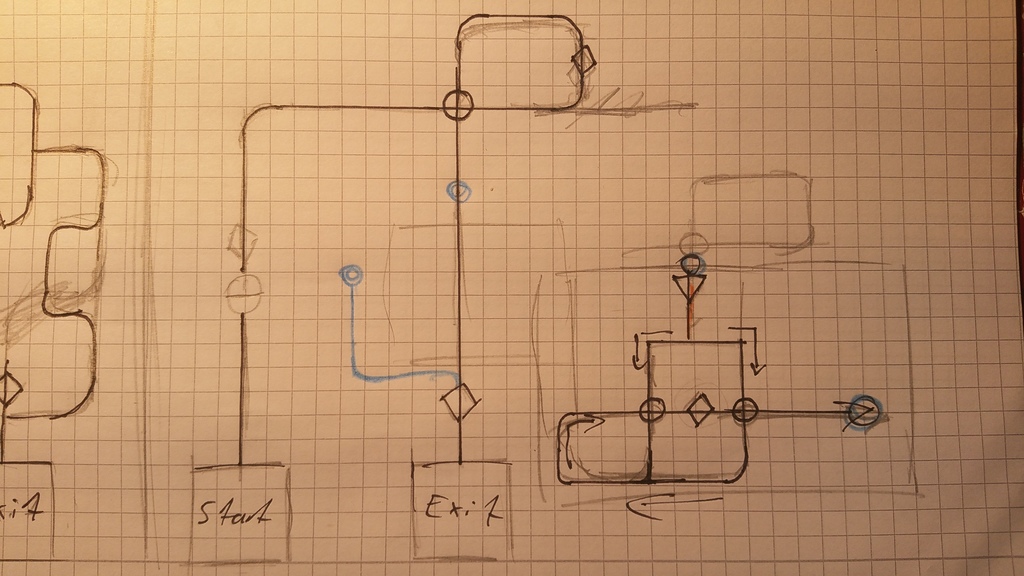 xit
Start
Exit